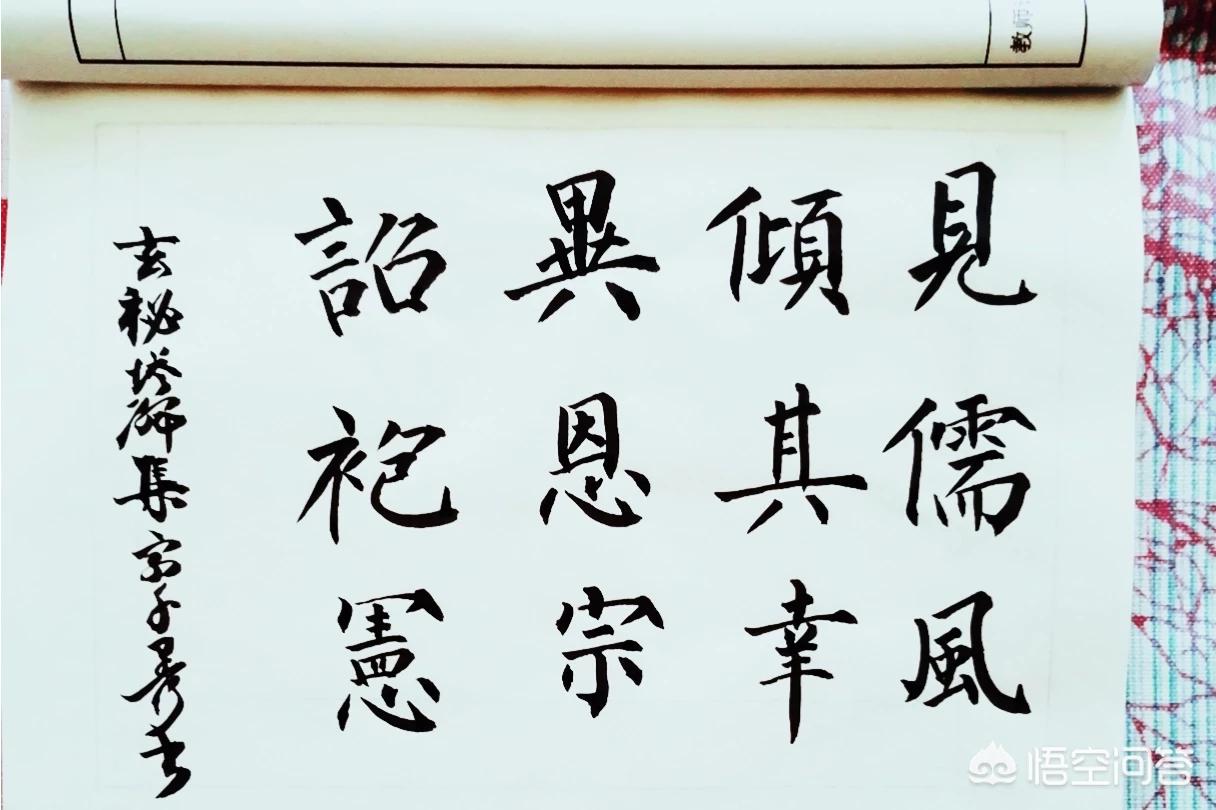 教师
見儒風
傾其幸
異恩宗
詔袍憲
玄秘塔碑集字
悟空问答